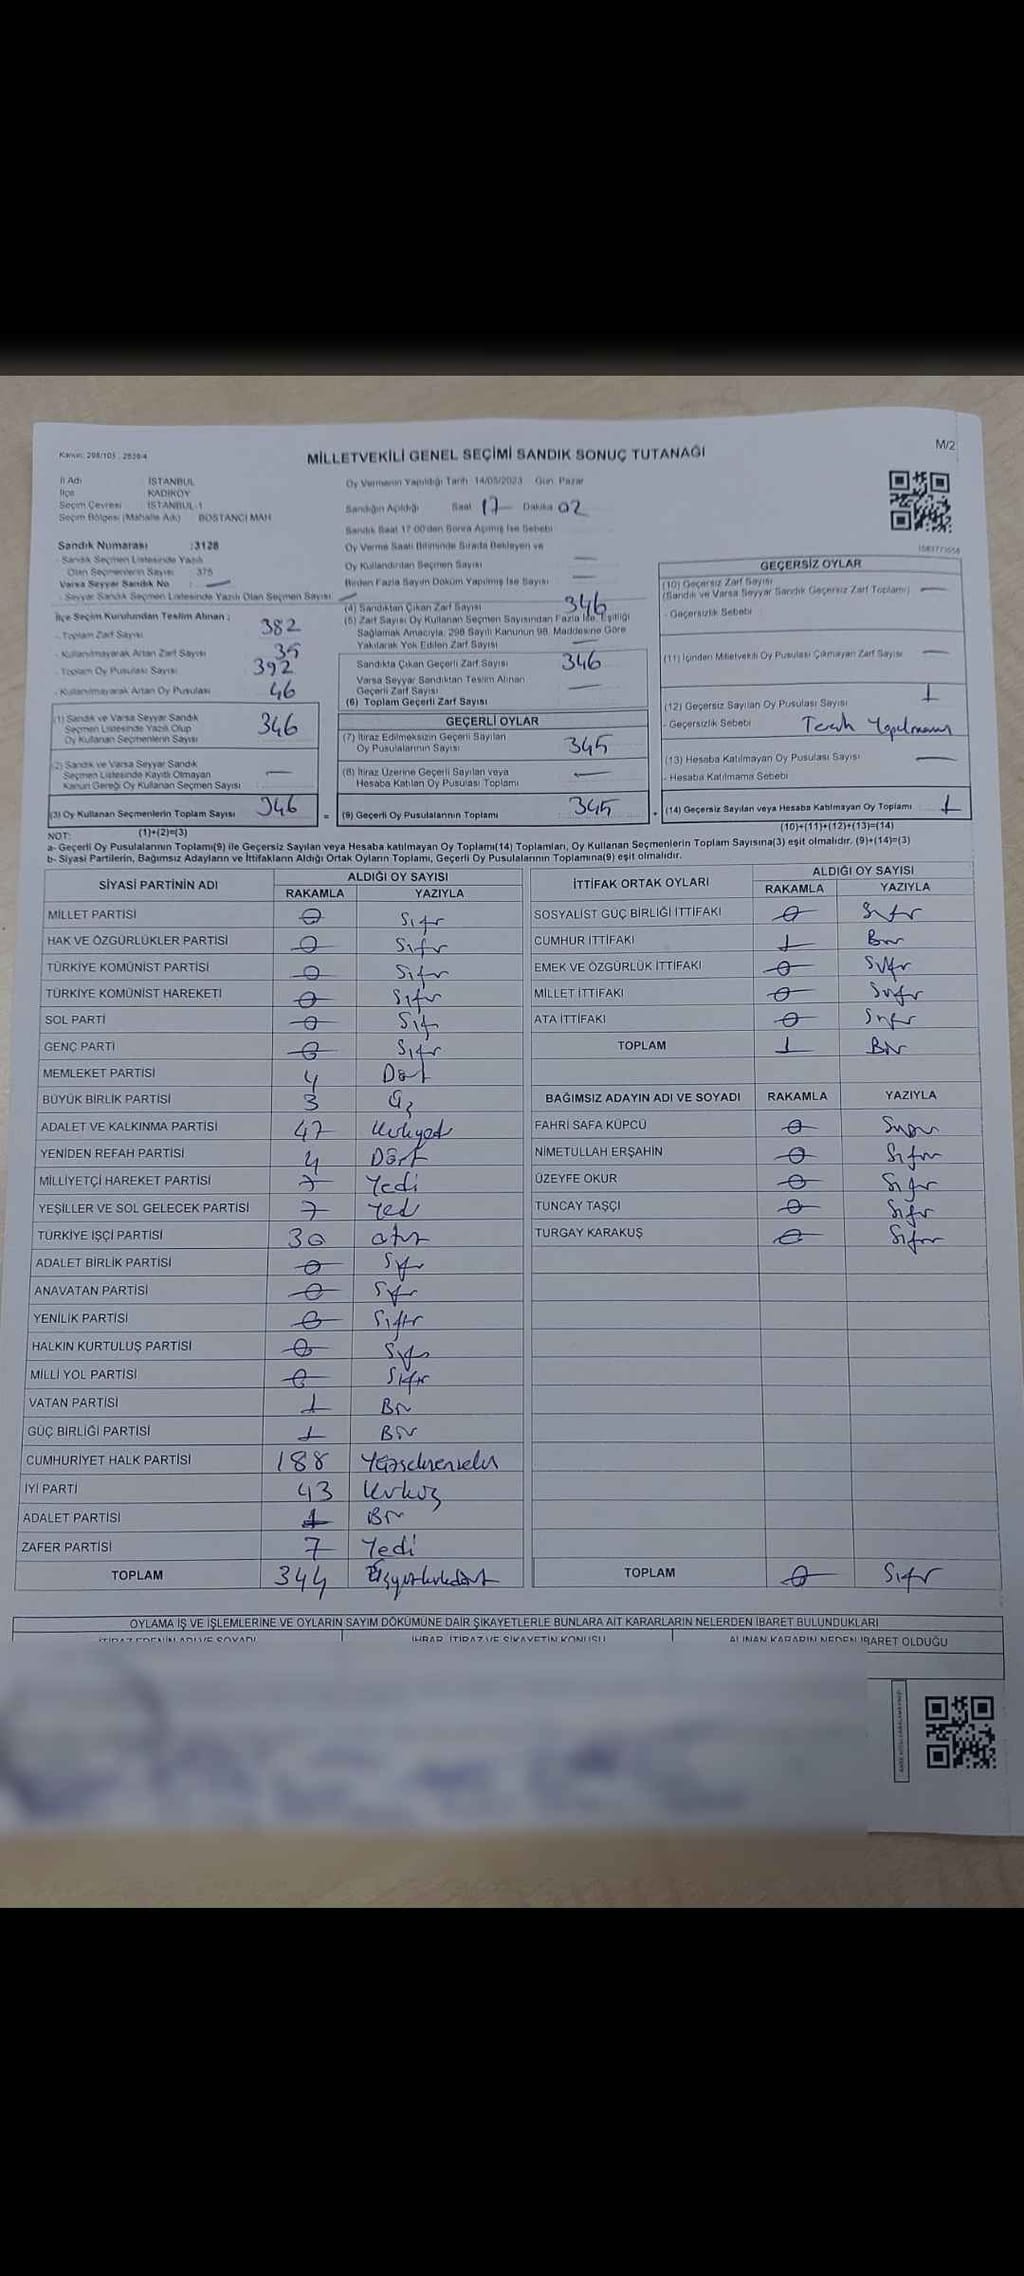 Kanun: 298/105 : 2839/4
MİLLETVEKİLİ GENEL SEÇİMİ SANDIK SONUÇ TUTANAĞI
M/2
İl Adı : İSTANBUL
İlçe : KADIKÖY
Seçim Çevresi : İSTANBUL-1
Seçim Bölgesi (Mahalle Adı) : BOSTANCI MAH
Oy Vermenin Yapıldığı Tarih: 14/05/2023 Gün: Pazar
Sandığın Açıldığı Saat 17 Dakika 02
Sandık Saat 17:00'den Sonra Açılmış İse Sebebi
Sandık Numarası : 3128
- Sandık Seçmen Listesinde Yazılı
Olan Seçmenlerin Sayısı : 375
Varsa Seyyar Sandık No : —
- Seyyar Sandık Seçmen Listesinde Yazılı Olan Seçmen Sayısı: —
Oy Verme Saati Bitiminde Sırada Bekleyen ve
Oy Kullandırılan Seçmen Sayısı —
Birden Fazla Sayım Döküm Yapılmış İse Sayısı —
İlçe Seçim Kurulundan Teslim Alınan :
- Toplam Zarf Sayısı 382
- Kullanılmayarak Artan Zarf Sayısı
- Toplam Oy Pusulası Sayısı 392
- Kullanılmayarak Artan Oy Pusulası 46
(1) Sandık ve Varsa Seyyar Sandık
Seçmen Listesinde Yazılı Olup
Oy Kullanan Seçmenlerin Sayısı 346
(2) Sandık ve Varsa Seyyar Sandık
Seçmen Listesinde Kayıtlı Olmayan
Kanun Gereği Oy Kullanan Seçmen Sayısı —
(3) Oy Kullanan Seçmenlerin Toplam Sayısı 346
(4) Sandıktan Çıkan Zarf Sayısı 346
(5) Zarf Sayısı Oy Kullanan Seçmen Sayısından Fazla İse, Eşitliği
Sağlamak Amacıyla, 298 Sayılı Kanunun 98. Maddesine Göre
Yakılarak Yok Edilen Zarf Sayısı —
Sandıkta Çıkan Geçerli Zarf Sayısı 346
Varsa Seyyar Sandıktan Teslim Alınan
Geçerli Zarf Sayısı —
(6) Toplam Geçerli Zarf Sayısı
GEÇERLİ OYLAR
(7) İtiraz Edilmeksizin Geçerli Sayılan
Oy Pusulalarının Sayısı 345
(8) İtiraz Üzerine Geçerli Sayılan veya
Hesaba Katılan Oy Pusulası Toplamı —
= (9) Geçerli Oy Pusulalarının Toplamı 345
GEÇERSİZ OYLAR
(10) Geçersiz Zarf Sayısı
(Sandık ve Varsa Seyyar Sandık Geçersiz Zarf Toplamı) —
- Geçersizlik Sebebi
(11) İçinden Milletvekili Oy Pusulası Çıkmayan Zarf Sayısı —
(12) Geçersiz Sayılan Oy Pusulası Sayısı 1
- Geçersizlik Sebebi
(13) Hesaba Katılmayan Oy Pusulası Sayısı —
- Hesaba Katılmama Sebebi
+ (14) Geçersiz Sayılan veya Hesaba Katılmayan Oy Toplamı 1
NOT: (1)+(2)=(3)
(10)+(11)+(12)+(13)=(14)
a- Geçerli Oy Pusulalarının Toplamı(9) ile Geçersiz Sayılan veya Hesaba katılmayan Oy Toplamı(14) Toplamları, Oy Kullanan Seçmenlerin Toplam Sayısına(3) eşit olmalıdır. (9)+(14)=(3)
b- Siyasi Partilerin, Bağımsız Adayların ve İttifakların Aldığı Ortak Oyların Toplamı, Geçerli Oy Pusulalarının Toplamına(9) eşit olmalıdır.
SİYASİ PARTİNİN ADI ALDIĞI OY SAYISI
RAKAMLA YAZIYLA
MİLLET PARTİSİ 0 Sıfır
HAK VE ÖZGÜRLÜKLER PARTİSİ 0 Sıfır
TÜRKİYE KOMÜNİST PARTİSİ 0 Sıfır
TÜRKİYE KOMÜNİST HAREKETİ 0 Sıfır
SOL PARTİ 0 Sıfır
GENÇ PARTİ 0 Sıfır
MEMLEKET PARTİSİ 4 Dört
BÜYÜK BİRLİK PARTİSİ 3 Üç
ADALET VE KALKINMA PARTİSİ 47 Kırkyedi
YENİDEN REFAH PARTİSİ 4 Dört
MİLLİYETÇİ HAREKET PARTİSİ 7 Yedi
YEŞİLLER VE SOL GELECEK PARTİSİ 7 Yedi
TÜRKİYE İŞÇİ PARTİSİ 30 otuz
ADALET BİRLİK PARTİSİ 0 Sıfır
ANAVATAN PARTİSİ 0 Sıfır
YENİLİK PARTİSİ 0 Sıfır
HALKIN KURTULUŞ PARTİSİ 0 Sıfır
MİLLİ YOL PARTİSİ 0 Sıfır
VATAN PARTİSİ 1 Bir
GÜÇ BİRLİĞİ PARTİSİ 1 Bir
CUMHURİYET HALK PARTİSİ 188 Yüzseksensekiz
İYİ PARTİ 43 Kırküç
ADALET PARTİSİ 1 Bir
ZAFER PARTİSİ 7 Yedi
TOPLAM 344 Üçyüzkırkdört
İTTİFAK ORTAK OYLARI ALDIĞI OY SAYISI
RAKAMLA YAZIYLA
SOSYALİST GÜÇ BİRLİĞİ İTTİFAKI 0 Sıfır
CUMHUR İTTİFAKI 1 Bir
EMEK VE ÖZGÜRLÜK İTTİFAKI 0 Sıfır
MİLLET İTTİFAKI 0 Sıfır
ATA İTTİFAKI 0 Sıfır
TOPLAM 1 Bir
BAĞIMSIZ ADAYIN ADI VE SOYADI RAKAMLA YAZIYLA
FAHRİ SAFA KÜPCÜ 0 Sıfır
NİMETULLAH ERŞAHİN 0 Sıfır
ÜZEYFE OKUR 0 Sıfır
TUNCAY TAŞÇI 0 Sıfır
TURGAY KARAKUŞ 0 Sıfır
TOPLAM 0 Sıfır
OYLAMA İŞ VE İŞLEMLERİNE VE OYLARIN SAYIM DÖKÜMÜNE DAİR ŞİKAYETLERLE BUNLARA AİT KARARLARIN NELERDEN İBARET BULUNDUKLARI
İTİRAZ EDENİN ADI VE SOYADI İHBAR, İTİRAZ VE ŞİKAYETİN KONUSU ALINAN KARARIN NEDEN İBARET OLDUĞU